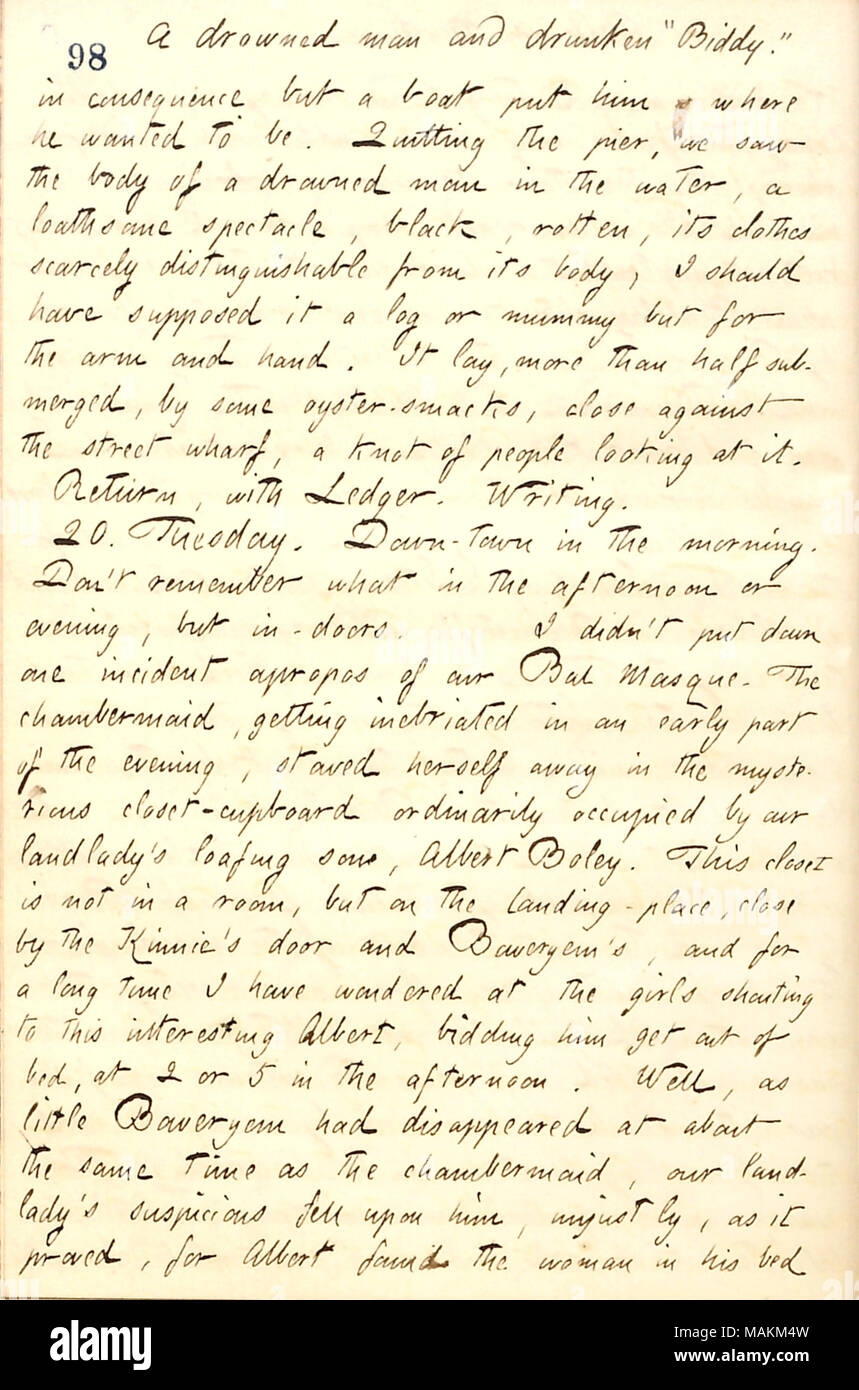 A drowned man and drunken "Biddy."
98
in consequence but a boat put him where
he wanted to be. Quitting the pier, we saw
the body of a drowned man in the water, a
loathsome spectacle, black, rotten, its clothes
scarcely distinguishable from its body; I should
have supposed it a log or mummy but for
the arm and hand. It lay, more than half sub-
merged, by some oyster-smacks, close against
the street wharf, a knot of people looking at it.
Return, with Ledger. Writing.
20. Tuesday. Down-town in the morning.
Don't remember what in the afternoon or
evening, but in-doors. I didn't put down
one incident apropos of our Bal Masque. The
chambermaid, getting inebriated in an early part
of the evening, stowed herself away in the myste-
rious closet-cupboard ordinarily occupied by our
landlady's loafing son, Albert Boley. This closet
is not in a room, but on the landing-place, close
by the Kinnie's door and Baweryem's, and for
a long time I have wondered at the girls shouting
to this interesting Albert, bidding him get out of
bed, at 2 or 5 in the afternoon. Well, as
little Baweryem had disappeared at about
the same time as the chambermaid, our land-
lady's suspicious fell upon him, unjustly, as it
proved, for Albert found the woman in his bed
alamy
Image ID: MAKM4W
www.alamy.com